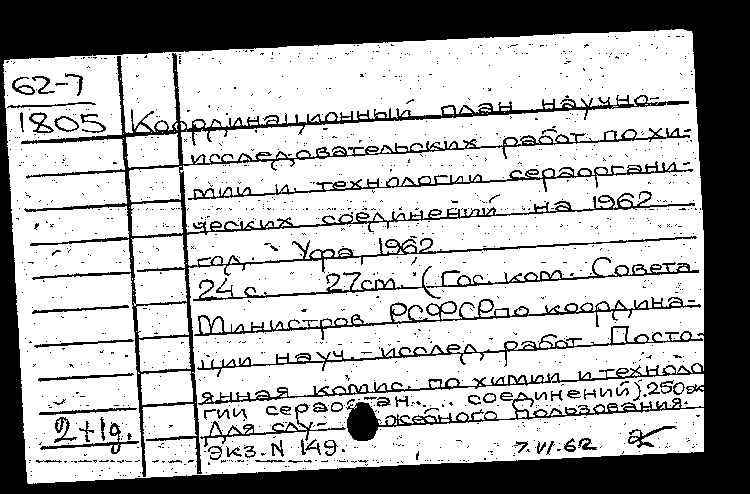 62-7
1805 Координационный план научно-
исследовательских работ по хи-
мии и технологии сераоргани-
ческих соединений на 1962
год. Уфа, 1962
24 с. 27см. (Гос. ком. Совета
Министров РСФСР по координа-
ции науч.-исслед. работ. Посто-
янная комис. по химии и техноло
гии сераорган. соединений). 250эк
Для слу- жебного пользования.
2+1д. Экз. N 149. 7.VI.62